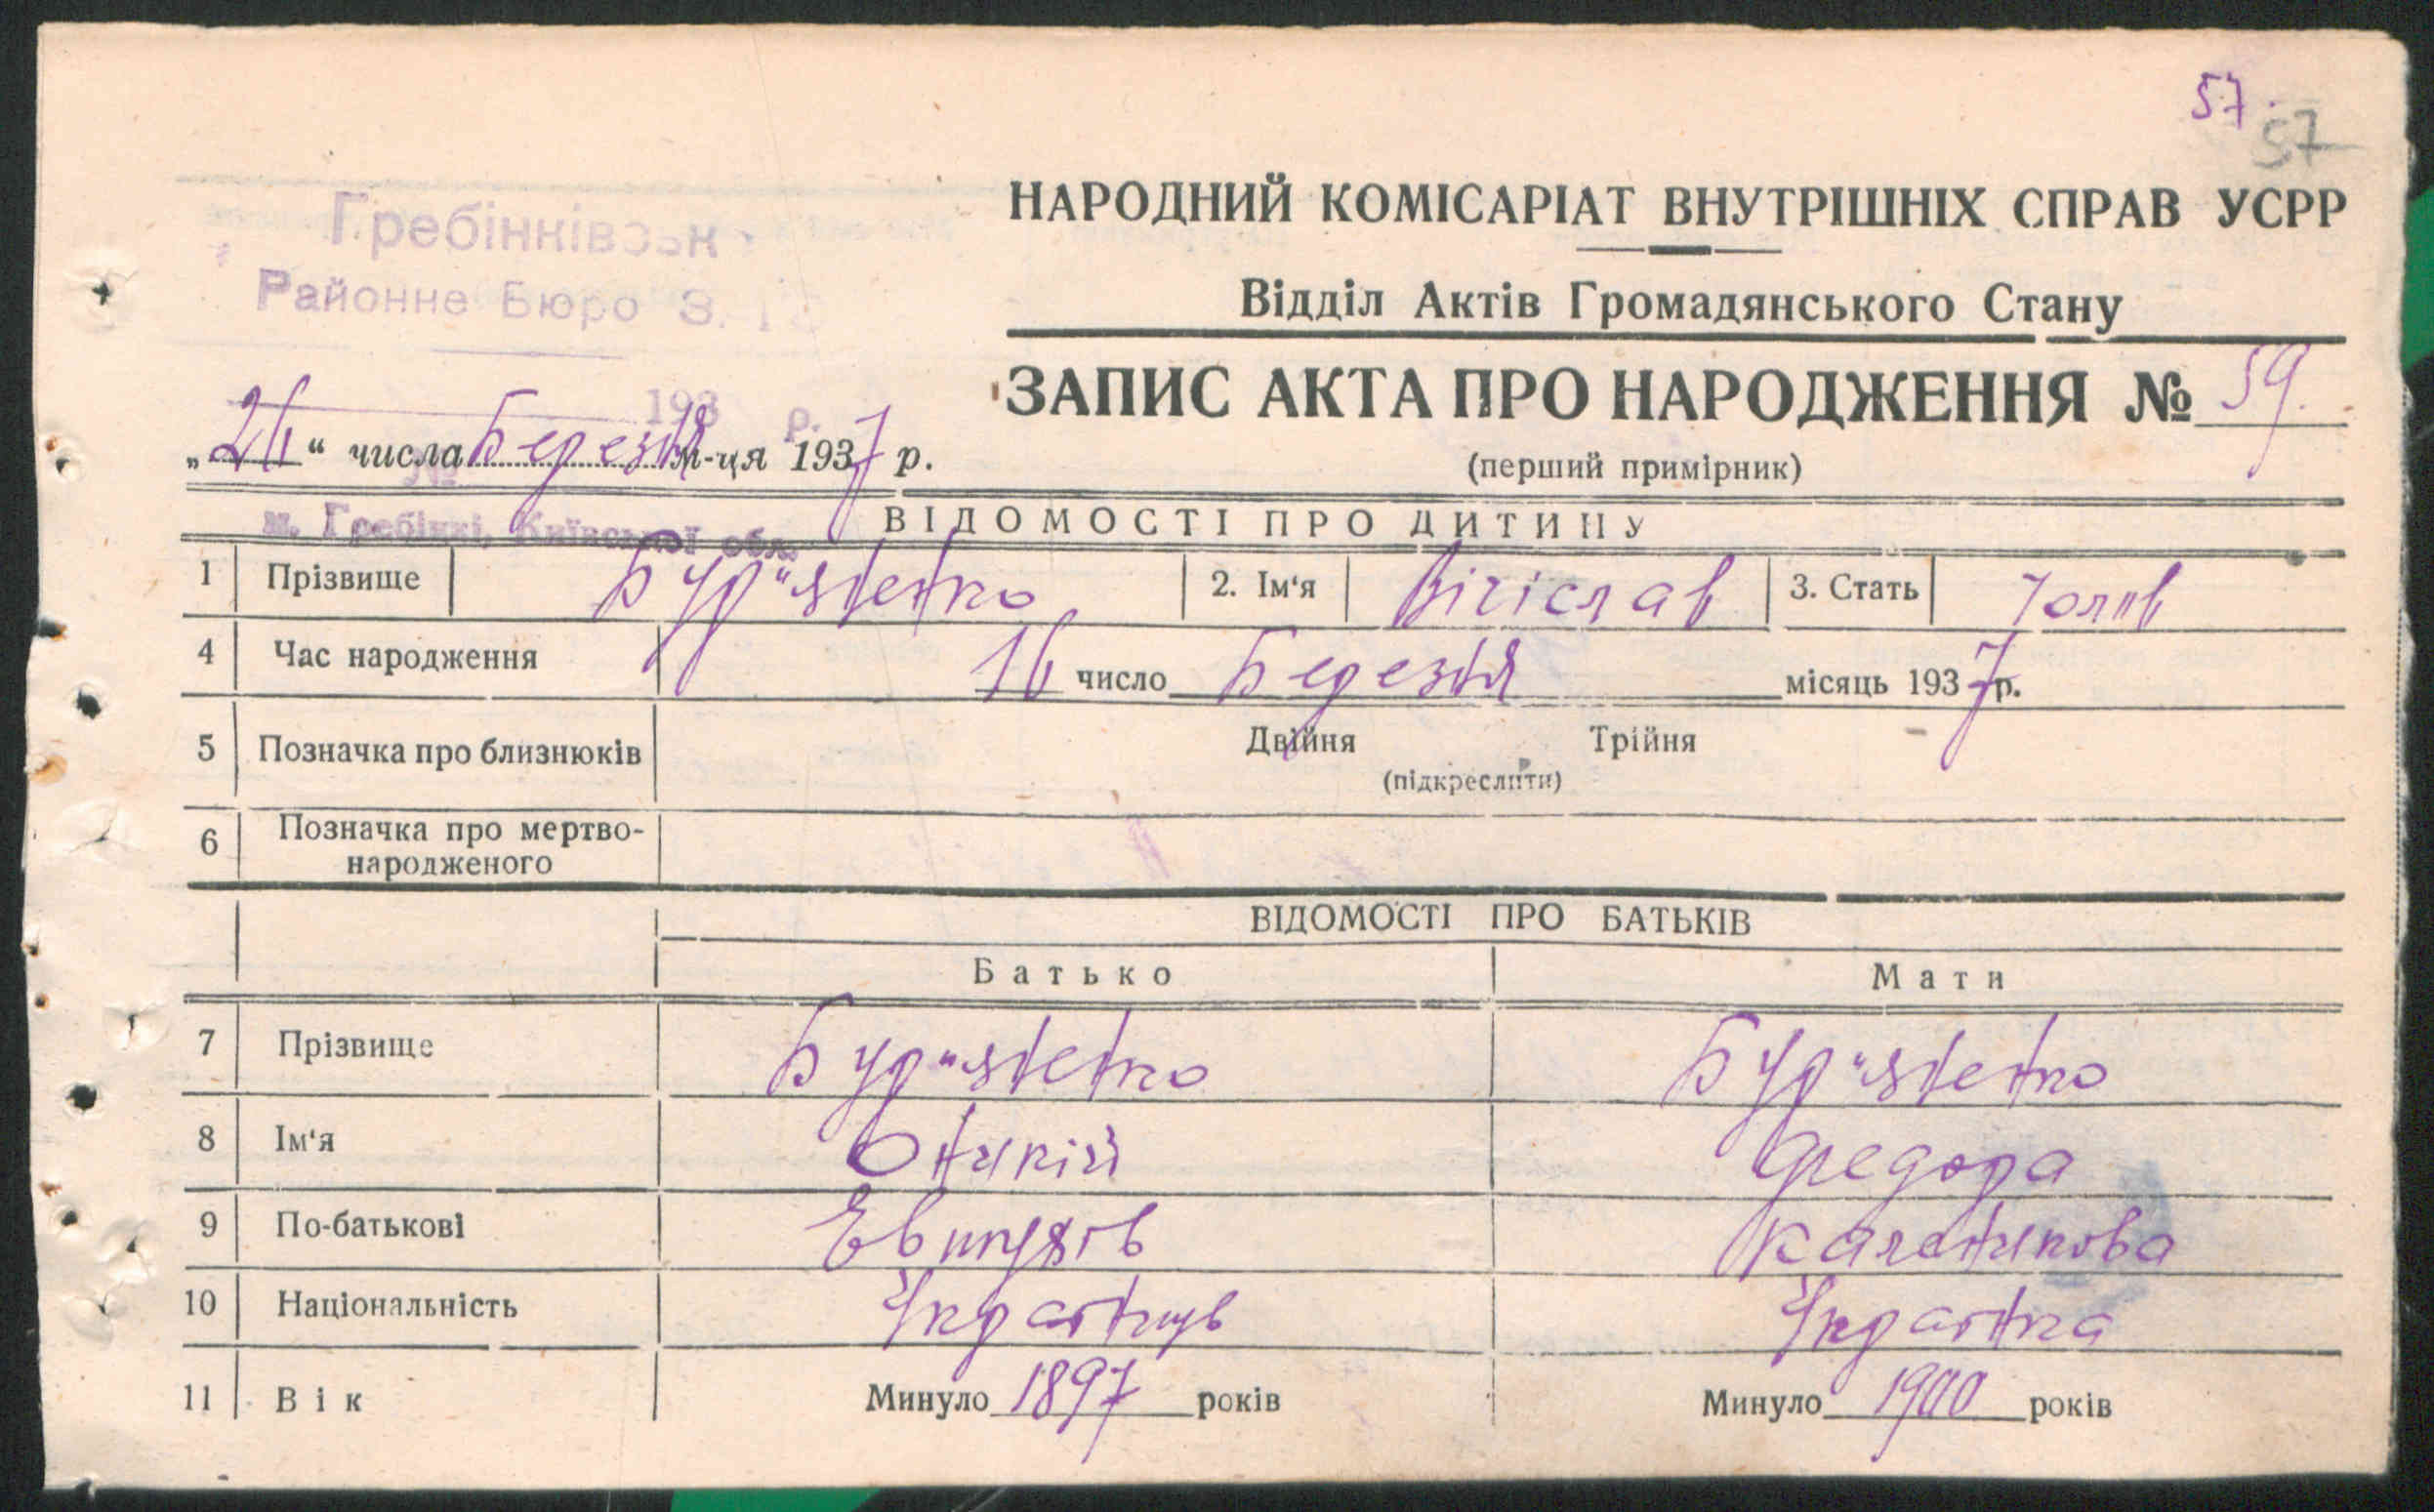 57.
57
Гребінківськ
Районне Бюро З.
193 р.
№
м. Гребінкі, Київської обл.
НАРОДНИЙ КОМІСАРІАТ ВНУТРІШНІХ СПРАВ УСРР
Відділ Актів Громадянського Стану
ЗАПИС АКТА ПРО НАРОДЖЕННЯ № 59.
„26“ числа Березня м-ця 1937 р.
(перший примірник)
ВІДОМОСТІ ПРО ДИТИНУ
1 Прізвище Бур"яненко 2. Ім‘я Вічіслав 3. Стать Чолов
4 Час народження 16 число Березня місяць 1937 р.
5 Позначка про близнюків Двійня Трійня
(підкреслити)
6 Позначка про мертво-
народженого
ВІДОМОСТІ ПРО БАТЬКІВ
Батько Мати
7 Прізвище Бур"яненко Бур"яненко
8 Ім‘я Оникій Федора
9 По-батькові Каленикова
10 Національність Українць Українка
11 Вік Минуло 1897 років Минуло 1900 років